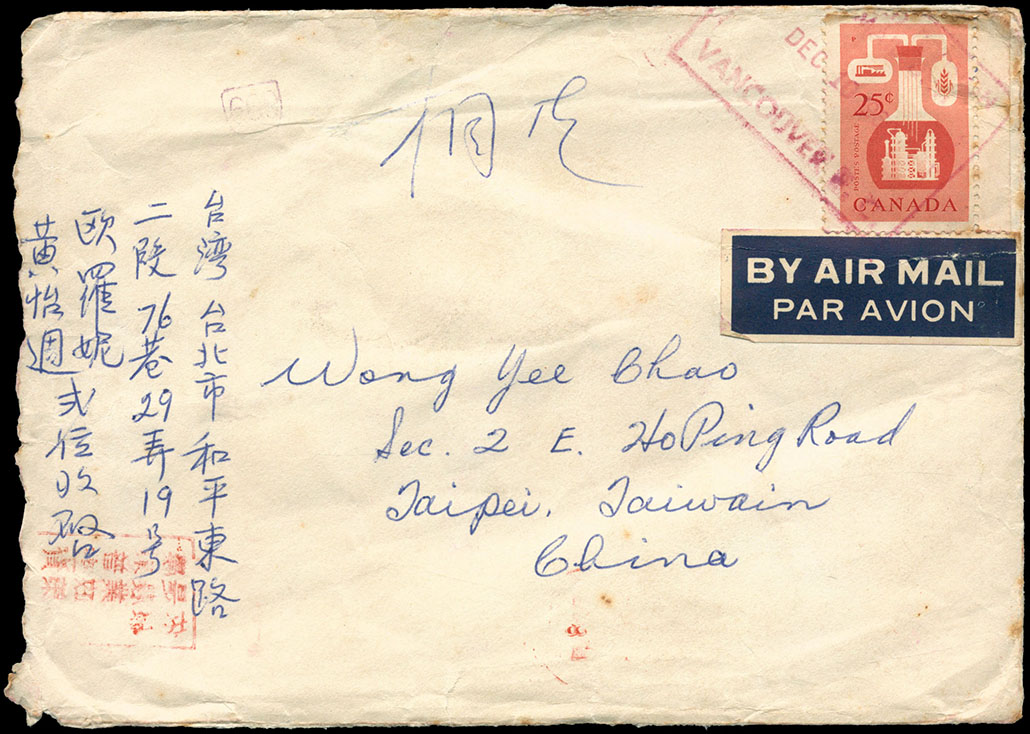 DEC
VANCOUVER
25¢
POSTES POSTAGE
CANADA
BY AIR MAIL
PAR AVION
台湾 台北市和平東路
二段 76巷29弄19号
欧羅妮
黃怡週 弍位收啓
Wong Yee Chao
Sec. 2 E. HoPing Road
Taipei, Taiwain
China